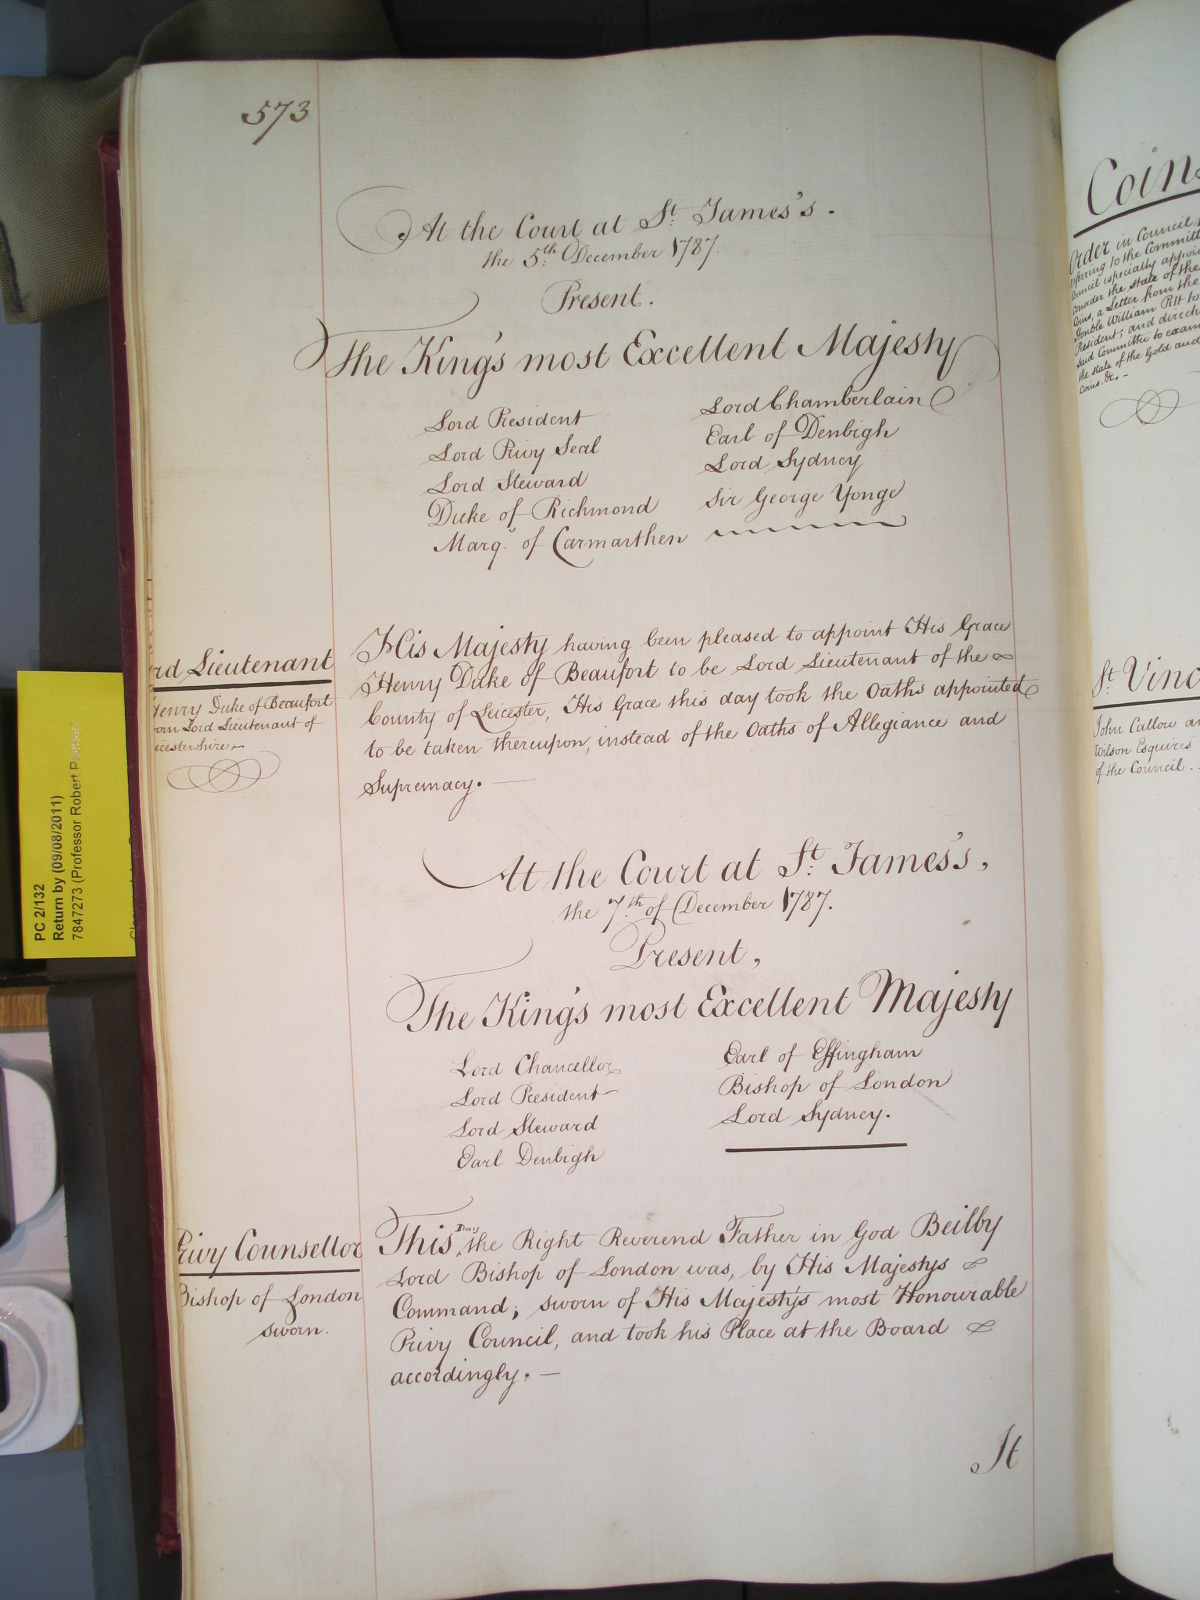 573
At the Court at St. James's.
the 5th. December 1787.
Present.
The King's most Excellent Majesty
Lord President
Lord Privy Seal
Lord Steward
Duke of Richmond
Marqs. of Carmarthen
Lord Chamberlain
Earl of Denbigh
Lord Sydney
Sir George Yonge
rd Lieutenant
Henry Duke of Beaufort
orn Lord Lieutenant of
icestershire
His Majesty having been pleased to appoint His Grace
Henry Duke of Beaufort to be Lord Lieutenant of the
County of Leicester, His Grace this day took the Oaths appointed
to be taken thereupon, instead of the Oaths of Allegiance and
Supremacy. —
At the Court at St. James's,
the 7th. of December 1787.
Present,
The King's most Excellent Majesty
Lord Chancellor
Lord President
Lord Steward
Earl Denbigh
Earl of Effingham
Bishop of London
Lord Sydney.
Privy Counsellor
Bishop of London
sworn.
This Day the Right Reverend Father in God Beilby
Lord Bishop of London was, by His Majesty's
Command, sworn of His Majesty's most Honourable
Privy Council, and took his Place at the Board
accordingly. —
It
PC 2/132
Return by (09/08/2011)
7847273 (Professor Robert
Coin
Order in Council
referring to the Committ
Council especially appoin
consider the state of the
Coins, a Letter from the
Honble William Pitt to
President; and direct
said Committee to exam
the state of the Gold and
Coins. &c. -
St. Vinc
John Callow an
Wilson Esquires
of the Council